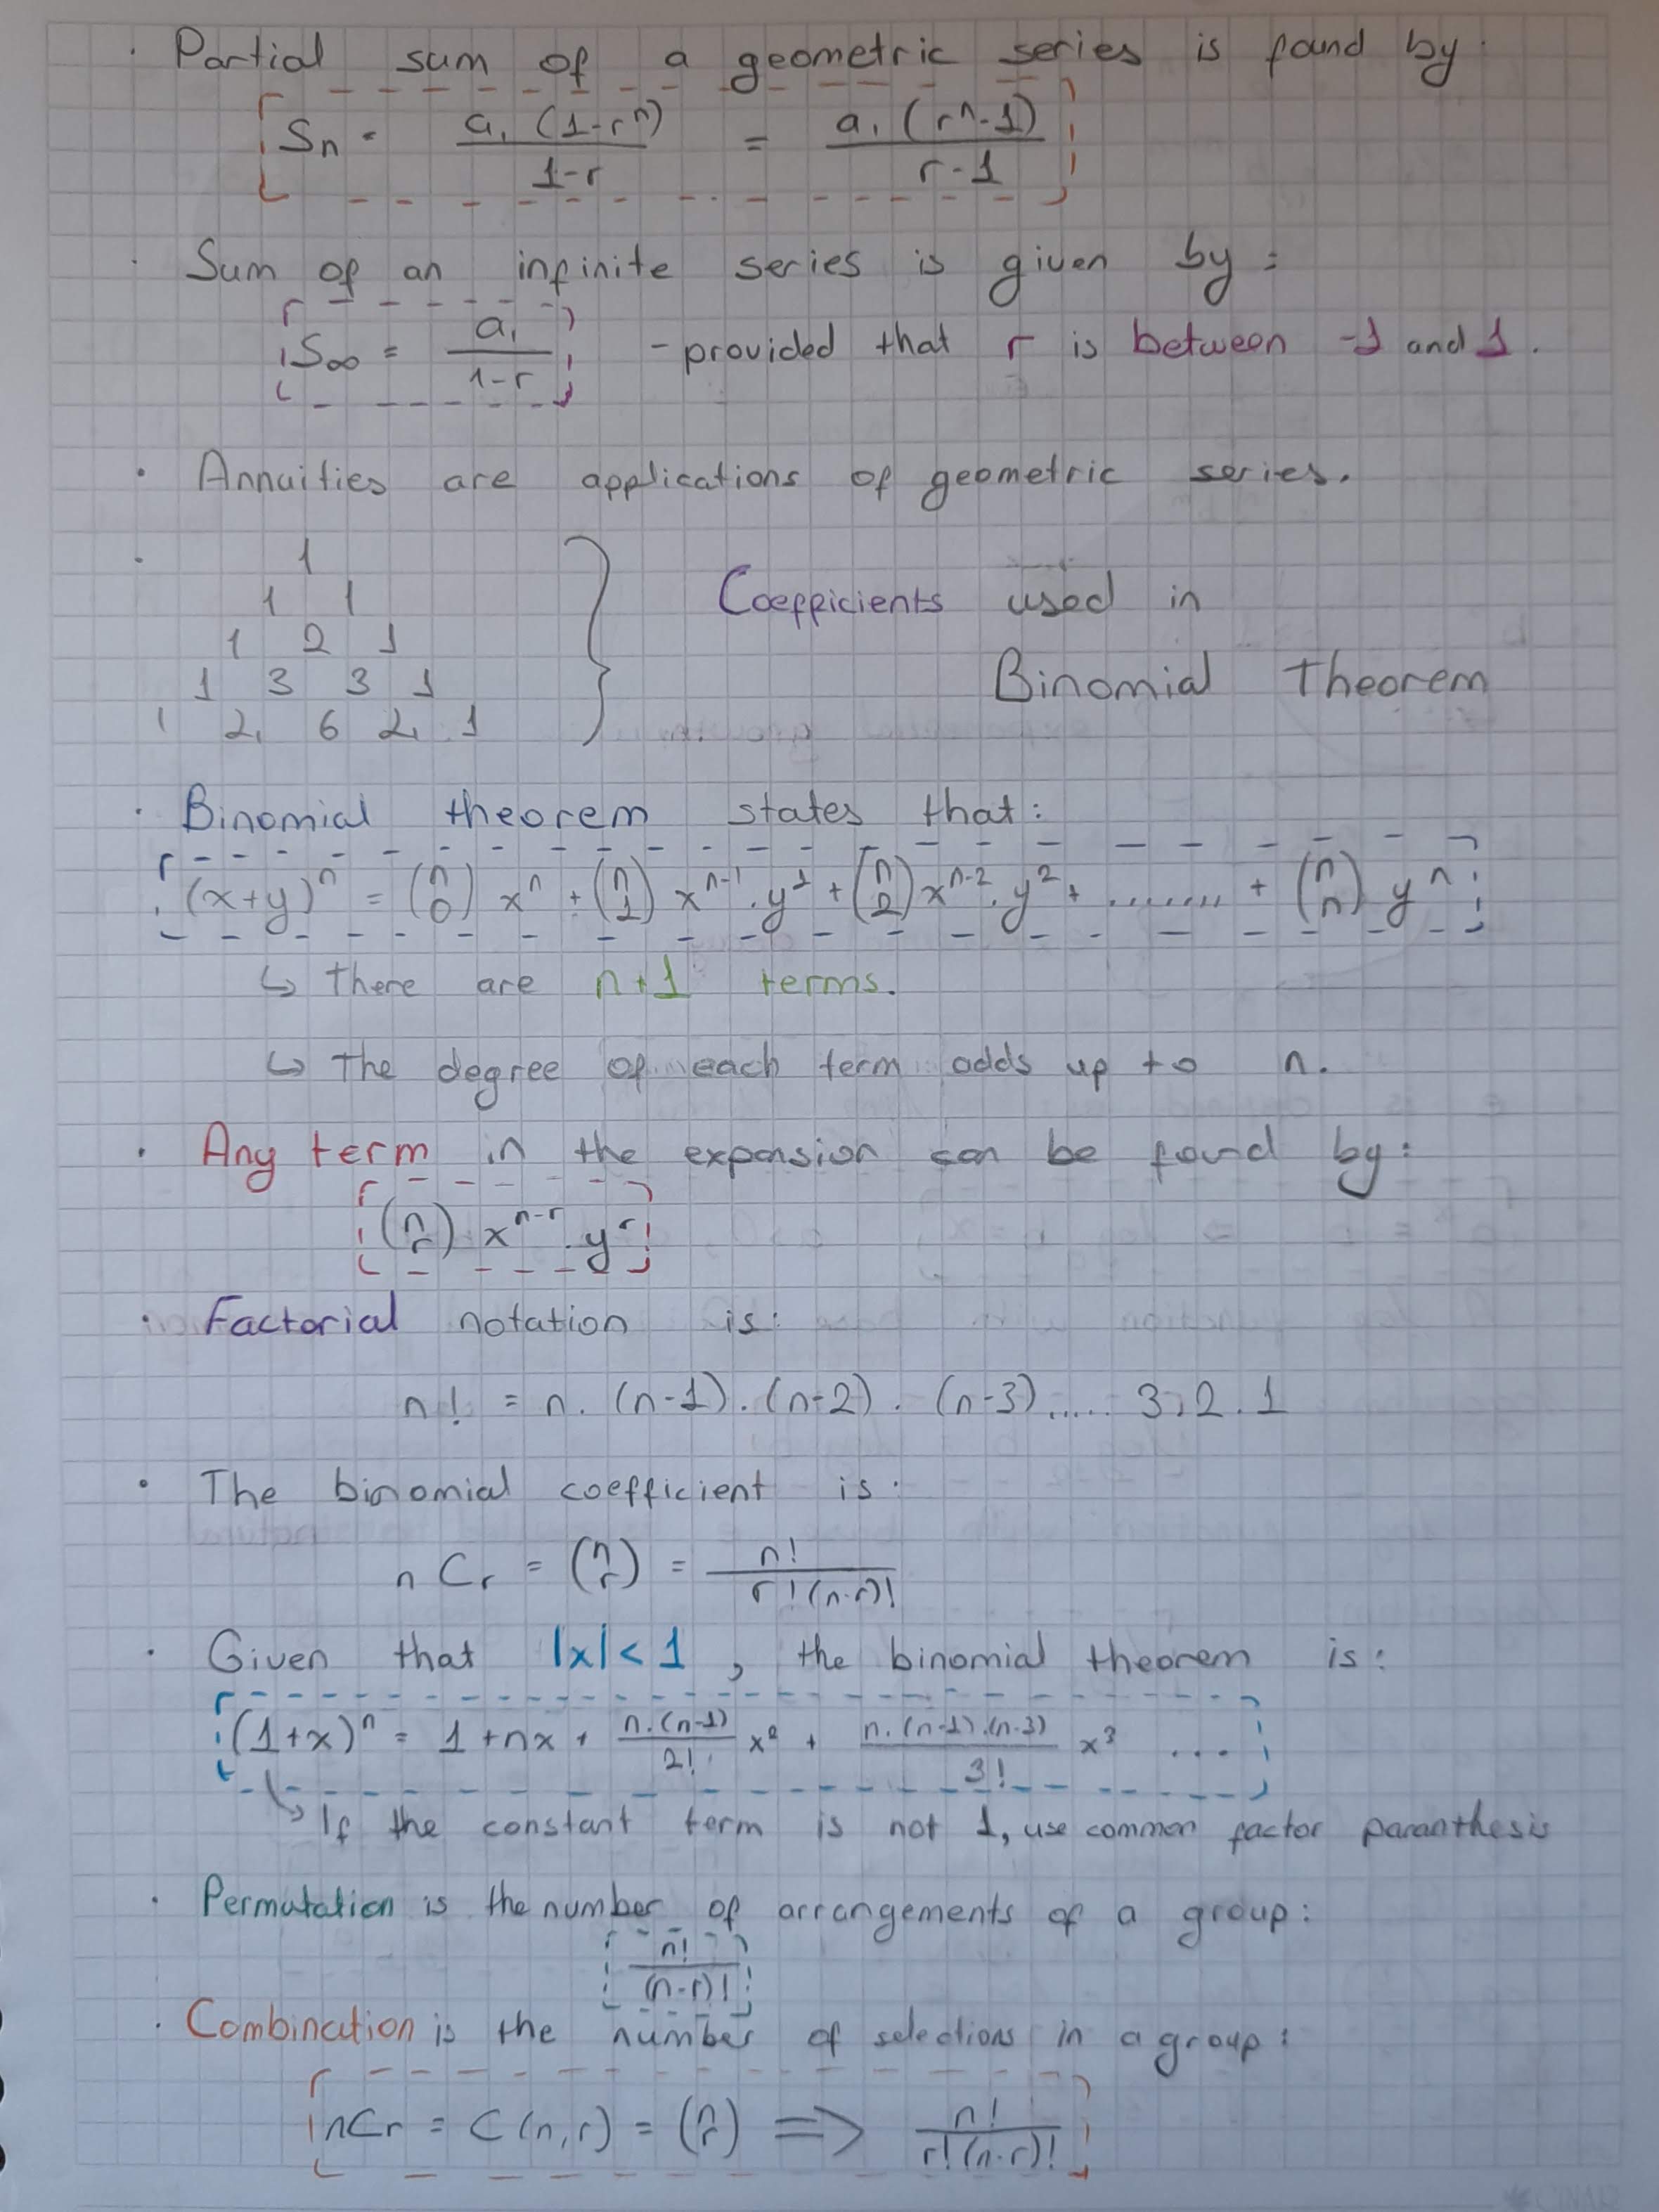 · Partial sum of a geometric series is found by:
Sn = a₁(1-rⁿ)/1-r = a₁(rⁿ-1)/r-1
· Sum of an infinite series is given by:
S∞ = a₁/1-r - provided that r is between -1 and 1.
· Annuities are applications of geometric series.
· 1
1 1
1 2 1
Coefficients used in
1 3 3 1
Binomial Theorem
1 4 6 4 1
· Binomial theorem states that:
(x+y)ⁿ = (n 0) xⁿ + (n 1) xⁿ⁻¹.y¹ + (n 2) xⁿ⁻².y² + ........ + (n n) yⁿ
↳ There are n+1 terms.
↳ The degree of each term adds up to n.
· Any term in the expansion can be found by:
(n r) xⁿ⁻ʳ.yʳ
· Factorial notation is:
n! = n.(n-1).(n-2).(n-3)..... 3.2.1
· The binomial coefficient is:
nCr = (n r) = n!/r!(n-r)!
· Given that |x|<1, the binomial theorem is:
(1+x)ⁿ = 1 + nx + n.(n-1)/2! x² + n.(n-1).(n-3)/3! x³ ...
↳ If the constant term is not 1, use common factor paranthesis
· Permutation is the number of arrangements of a group:
n!/(n-r)!
· Combination is the number of selections in a group:
nCr = C(n,r) = (n r) ⟹ n!/r!(n-r)!